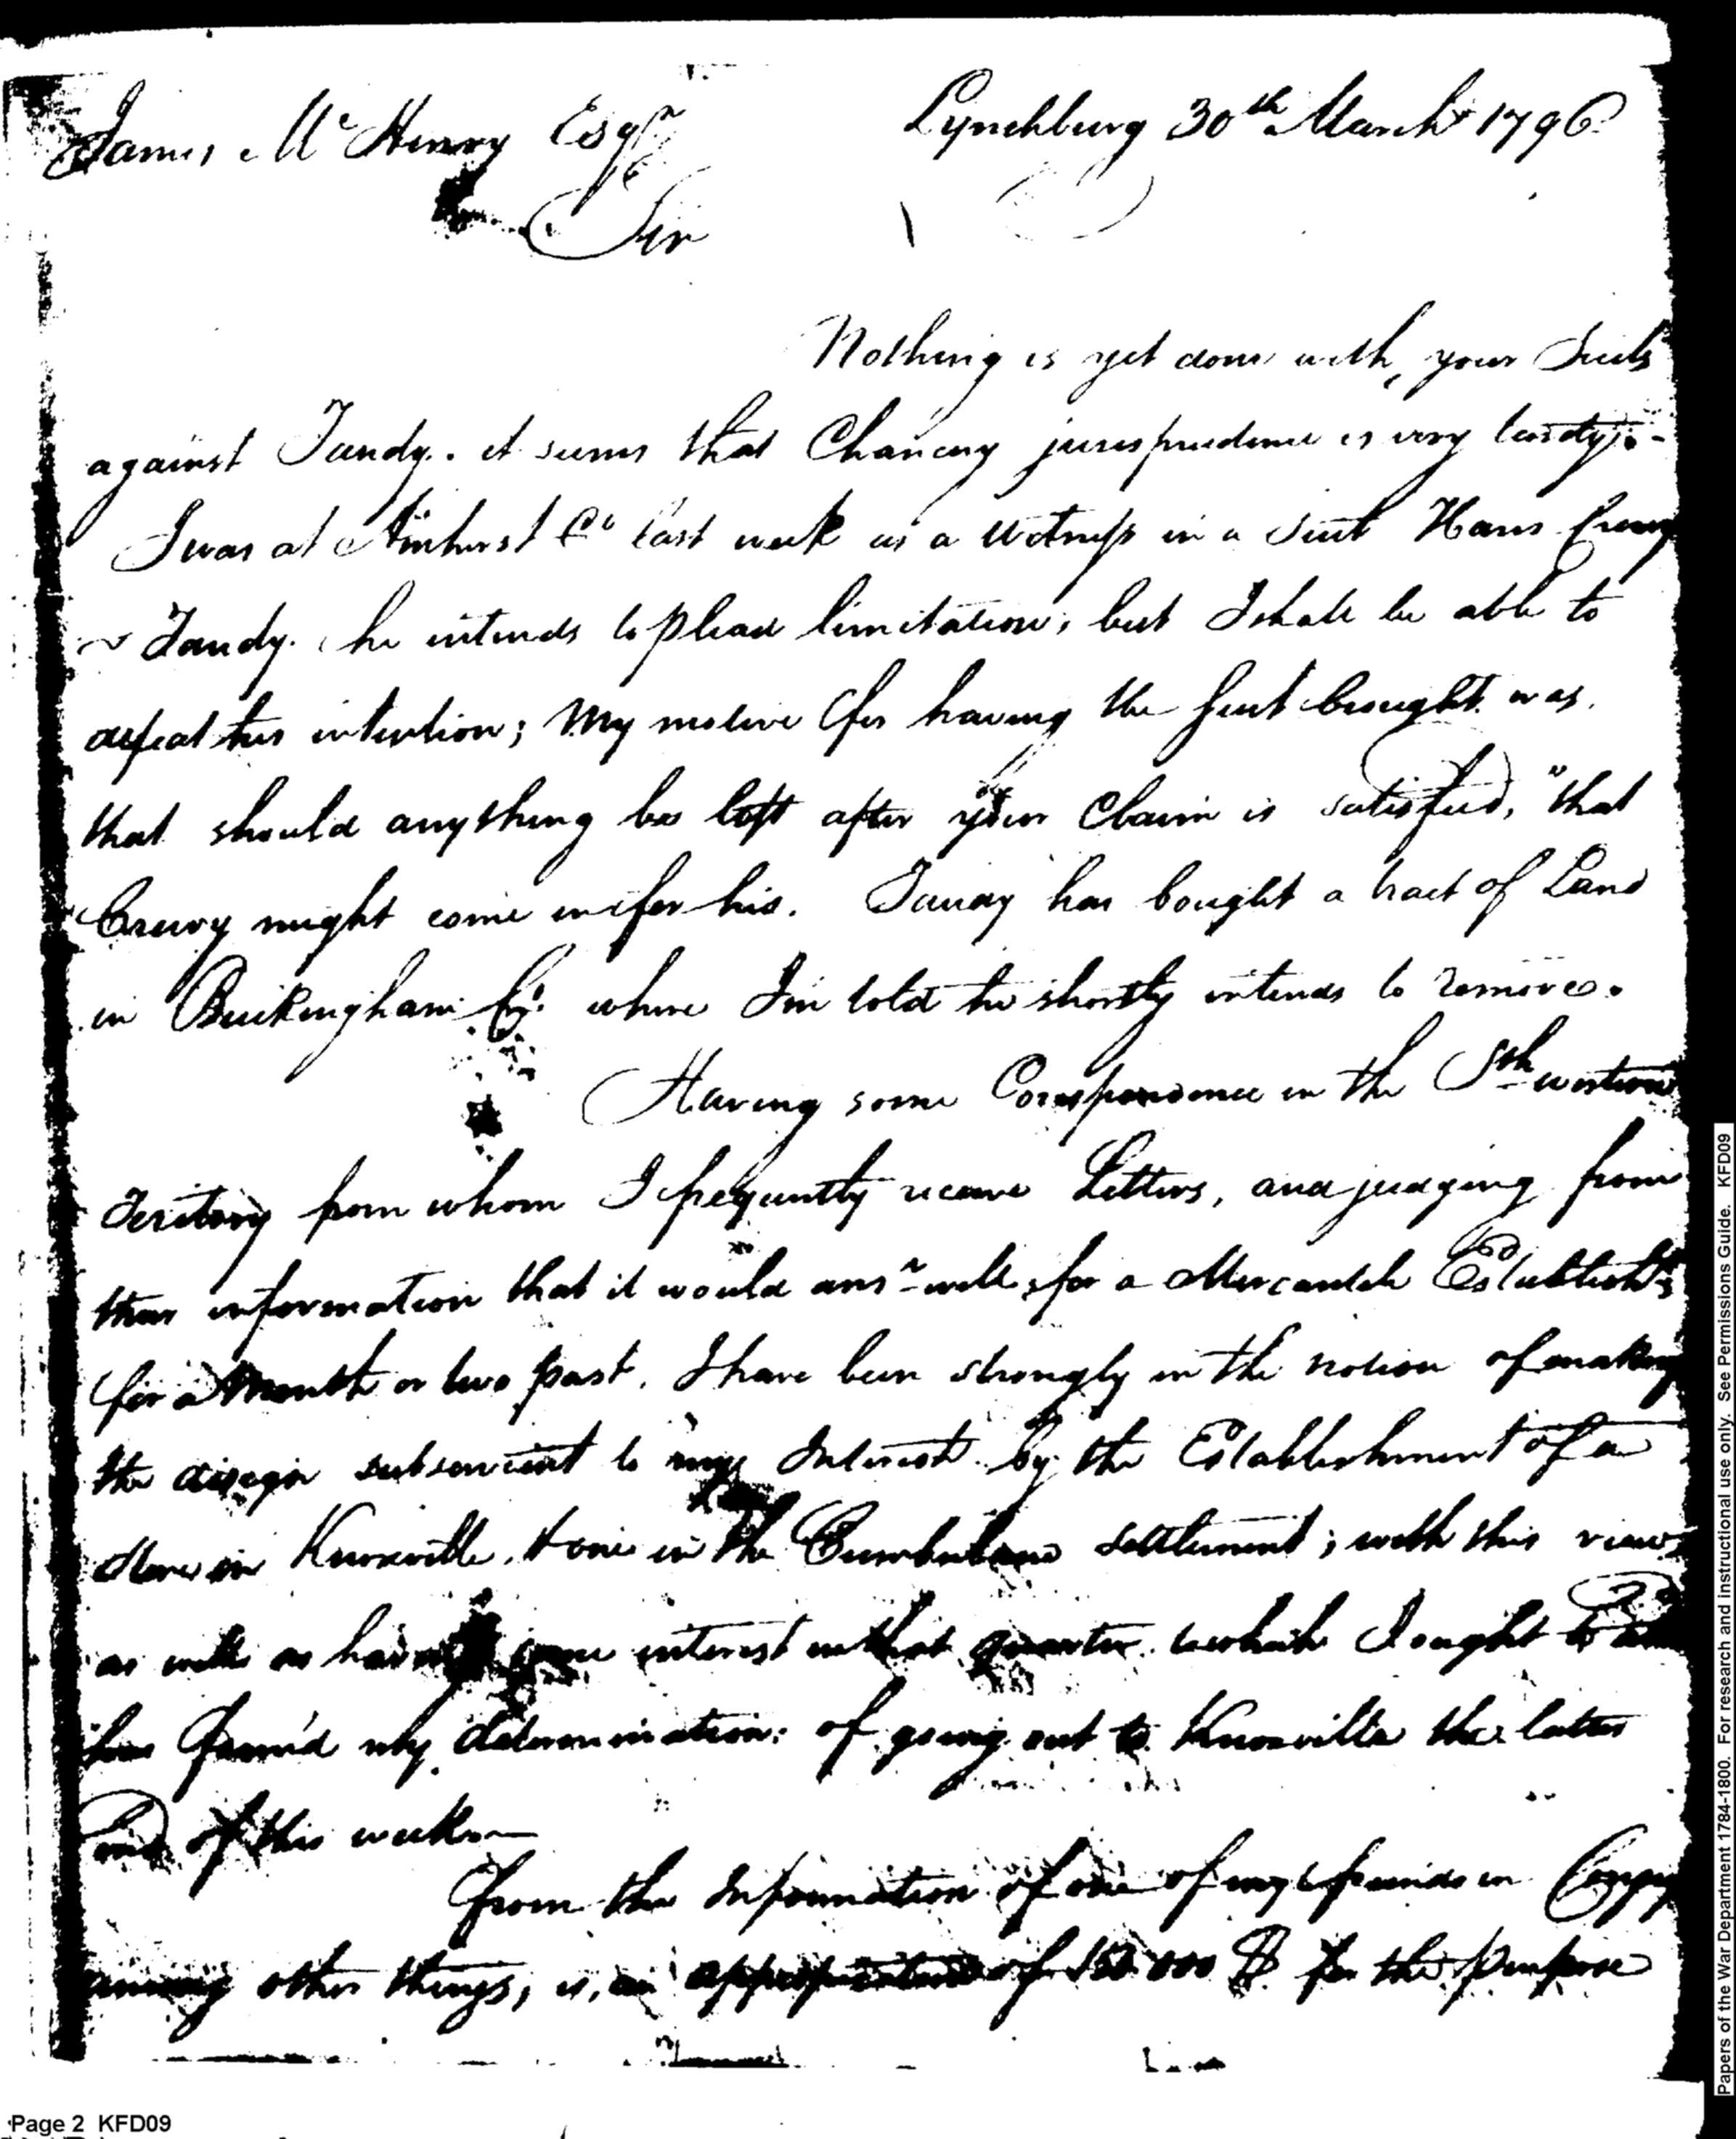 James McHenry Esqr
Lynchburg 30th March 1796
Sir
Nothing is yet done with, your Suits
against Tandy. it seems that Chancery jurisprudence is very tardy. -
I was at Amherst Co last week as a Witness in a Suit Hans Creevy
v Tandy. he intends to plead limitation, but I shall be able to
defeat his intention; My motive for having the Suit brought was,
that should anything be left after your Claim is satisfied, "that
Creevy might come in for his. Tandy has bought a tract of Land
in Buckingham Cy. where I'm told he shortly intends to remove.
Having some Correspondence in the Sth western
Teritory from whom I frequently receive Letters, and judging from
their information that it would ansr well, for a Mercantile Establisht
for a Month or two past, I have been strongly in the notion of making
the design subservient to my Interest by the Establishment of a
Store in Knoxville, & one in the Cumberland settlement; with this view
as well as having some interest in that quarter to which I ought to
have form'd my determination of going out to Knoxville the latter
end of this week
From the Information of one of my friends in
among other things, is, an appropriation of 150 000 $ for the purpose
Papers of the War Department 1784-1800. For research and instructional use only. See Permissions Guide. KFD09
Page 2 KFD09